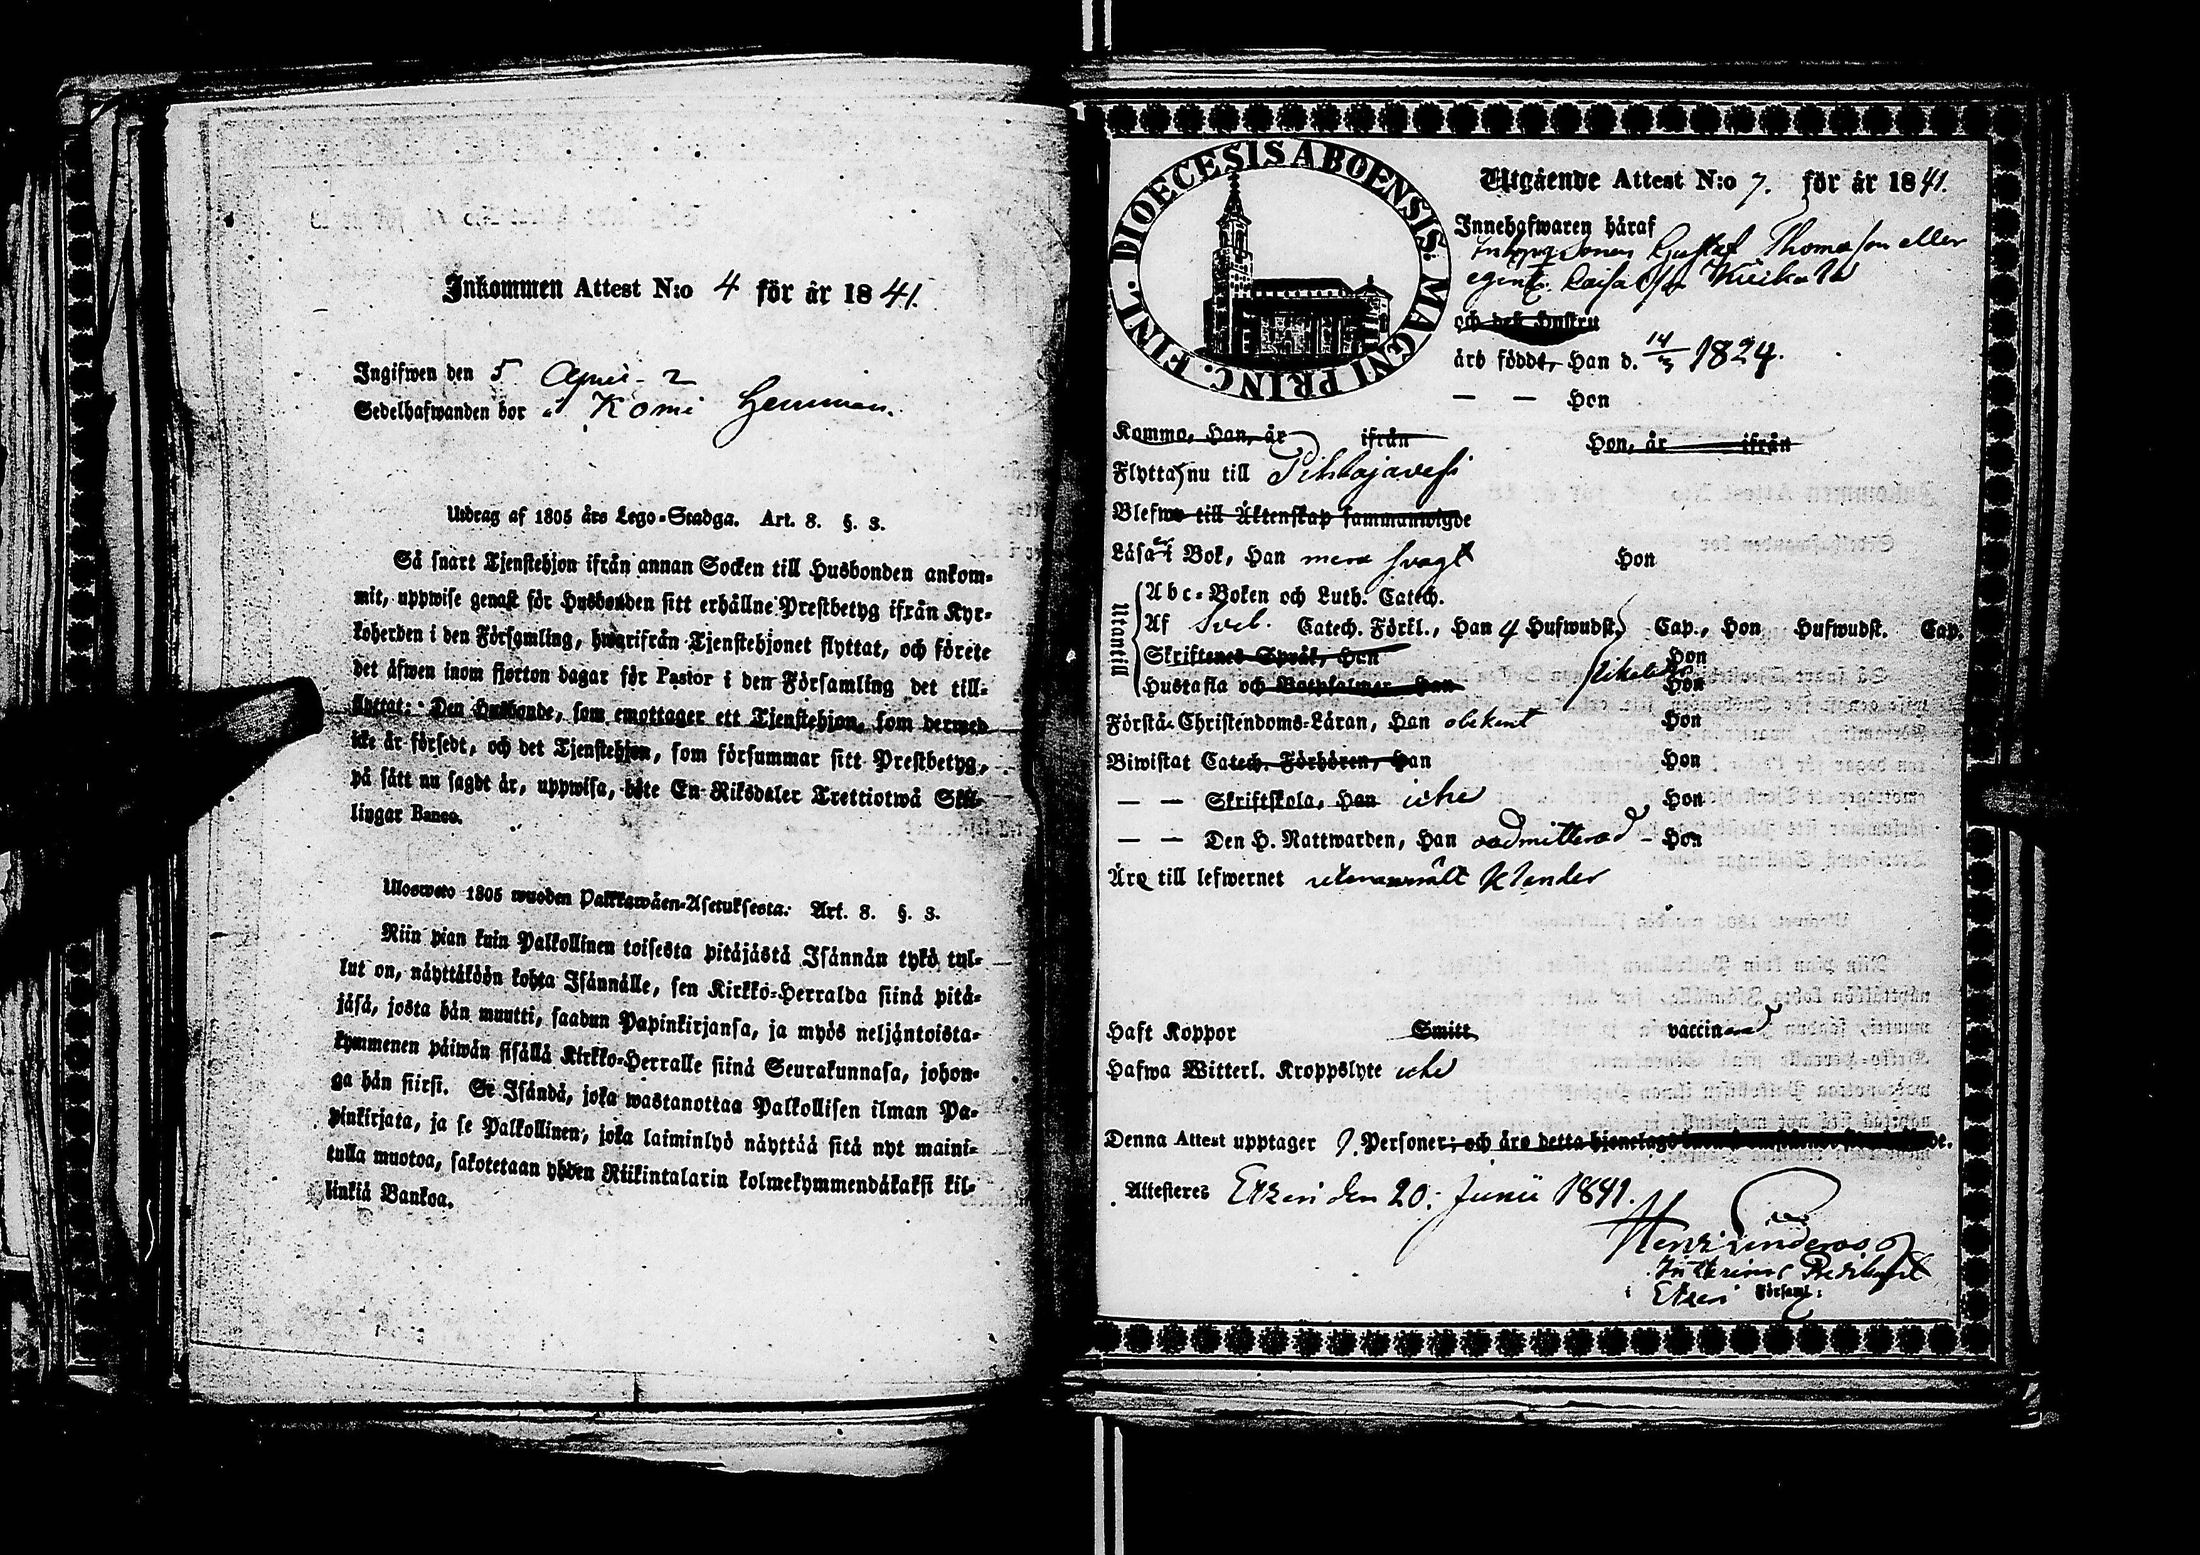 Inkommen Attest N:o 4 för år 1841.
Ingifwen den 5 April
Sedelhafwanden bor å Komi Hemman.
Utdrag af 1805 års Lego-Stadga. Art. 8. §. 3.
Så snart Tjenstehjon ifrån annan Socken till Husbonden ankom-
mit, uppwise genast för Husbonden sitt erhållne Prestbetyg ifrån Kyr-
koherden i den Församling, hwarifrån Tjenstehjonet flyttat, och förete
det äfwen inom fjorton dagar för Pastor i den Församling det till-
flyttat: Den Husbonde, som emottager ett Tjenstehjon, som dermed
icke är försedt, och det Tjenstehjon, som försummar sitt Prestbetyg,
på sätt nu sagdt är, uppwisa, böte En Riksdaler Trettiotwå Skil-
lingar Banco.
Ulosweto 1805 wuoden Palkkawäen-Asetuksesta. Art. 8. §. 3.
Niin pian kuin Palkollinen toisesta pitäjästä Isännän tykö tul-
lut on, näyttäköön kohta Isännälle, sen Kirkko-Herralda siinä pitä-
jäsä, josta hän muutti, saadun Papinkirjansa, ja myös neljäntoista-
kymmenen päiwän sisällä Kirkko-Herralle siinä Seurakunnasa, johon-
ga hän siirsi. Se Isändä, joka wastanottaa Palkollisen ilman Pa-
pinkirjata, ja se Palkollinen, joka laiminlyö näyttää sitä nyt maini-
tulla muotoa, sakotetaan yhden Riikintalarin kolmekymmendäkaksi kil-
linkiä Bankoa.
DIOECESIS ABOENSIS. MAGNI PRINC. FINL.
Utgående Attest N:o 7. för år 1841.
Innehafwaren häraf
Gustaf Thomasson eller
och dess Hustru
äro födde, Han d. 14/3 1824.
— — Hon
Komma, Han, år ifrån Hon, år ifrån
Flytta nu till Pihlajavesi
Blefwo till Äktenskap sammanwigde
Läsa i Bok, Han mera svagt Hon
Utantill
Abc-Boken och Luth. Catech.
Af Sveb. Catech. Förkl., Han 4 Hufwudst. Cap., Hon Hufwudst. Cap.
Skriftenes Språk, Han Hon
Hustafla och Botpsalmer Han Hon
Förstå Christendoms-Läran, Han obekant Hon
Biwistat Catech. Förhören, Han Hon
— — Skriftskola, Han icke Hon
— — Den H. Nattwarden, Han oadmitterad – Hon
Äro till lefwernet
Haft Koppor Smitt vaccinerad
Hafwa Witterl. Kroppslyte icke
Denna Attest upptager 1. Personer; och äro detta hjonelag
Attesteres Etzeri den 20: Junii 1841.
i Etzeri Församl: